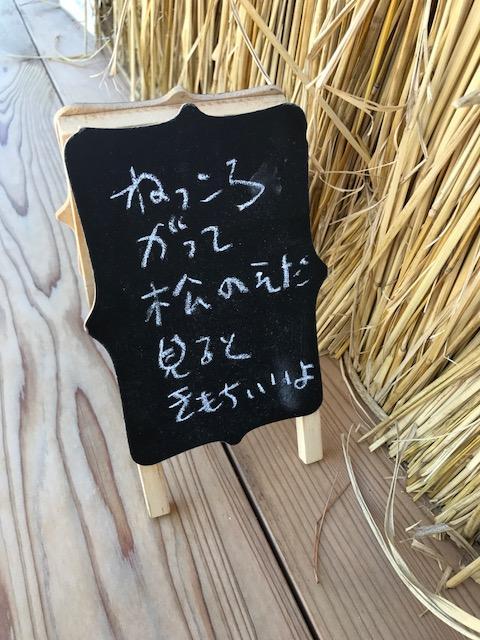 ねっころ
がって
松のえだ
見ると
きもちいいよ